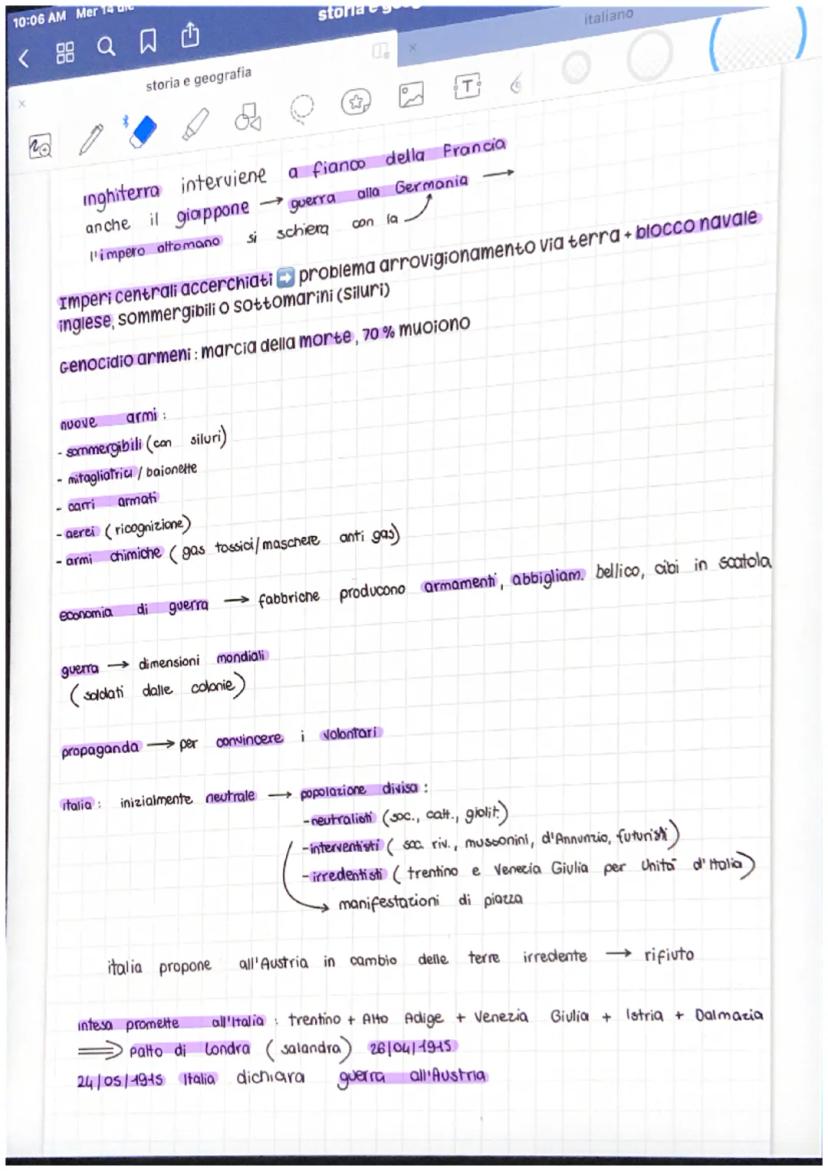 10:06 AM Mer 14 dic
storia e geog
italiano
storia e geografia
inghiterra interviene a fianco della Francia
anche il giappone → guerra alla Germania →
l'impero ottomano si schiera con la
Imperi centrali accerchiati ➡ problema arrovigionamento via terra + blocco navale
inglese, sommergibili o sottomarini (siluri)
Genocidio armeni : marcia della morte, 70 % muoiono
nuove armi :
- sommergibili (con siluri)
- mitagliatrici / baionette
- carri armati
- aerei (ricognizione)
- armi chimiche (gas tossici/maschere anti gas)
economia di guerra → fabbriche producono armamenti, abbigliam. bellico, cibi in scatola
guerra → dimensioni mondiali
(soldati dalle colonie)
propaganda → per convincere i volontari
italia : inizialmente neutrale → popolazione divisa :
- neutralisti (soc., catt., giolit.)
- interventisti ( soc. riv., mussonini, d'Annunzio, futuristi)
- irredentisti ( trentino e Venezia Giulia per Unità d'Italia)
→ manifestazioni di piazza
italia propone all'Austria in cambio delle terre irredente → rifiuto
intesa promette all'Italia : trentino + Alto Adige + Venezia Giulia + Istria + Dalmazia
⇒ patto di Londra ( salandra) 26/04/1915
24/05/1915 Italia dichiara guerra all'Austria